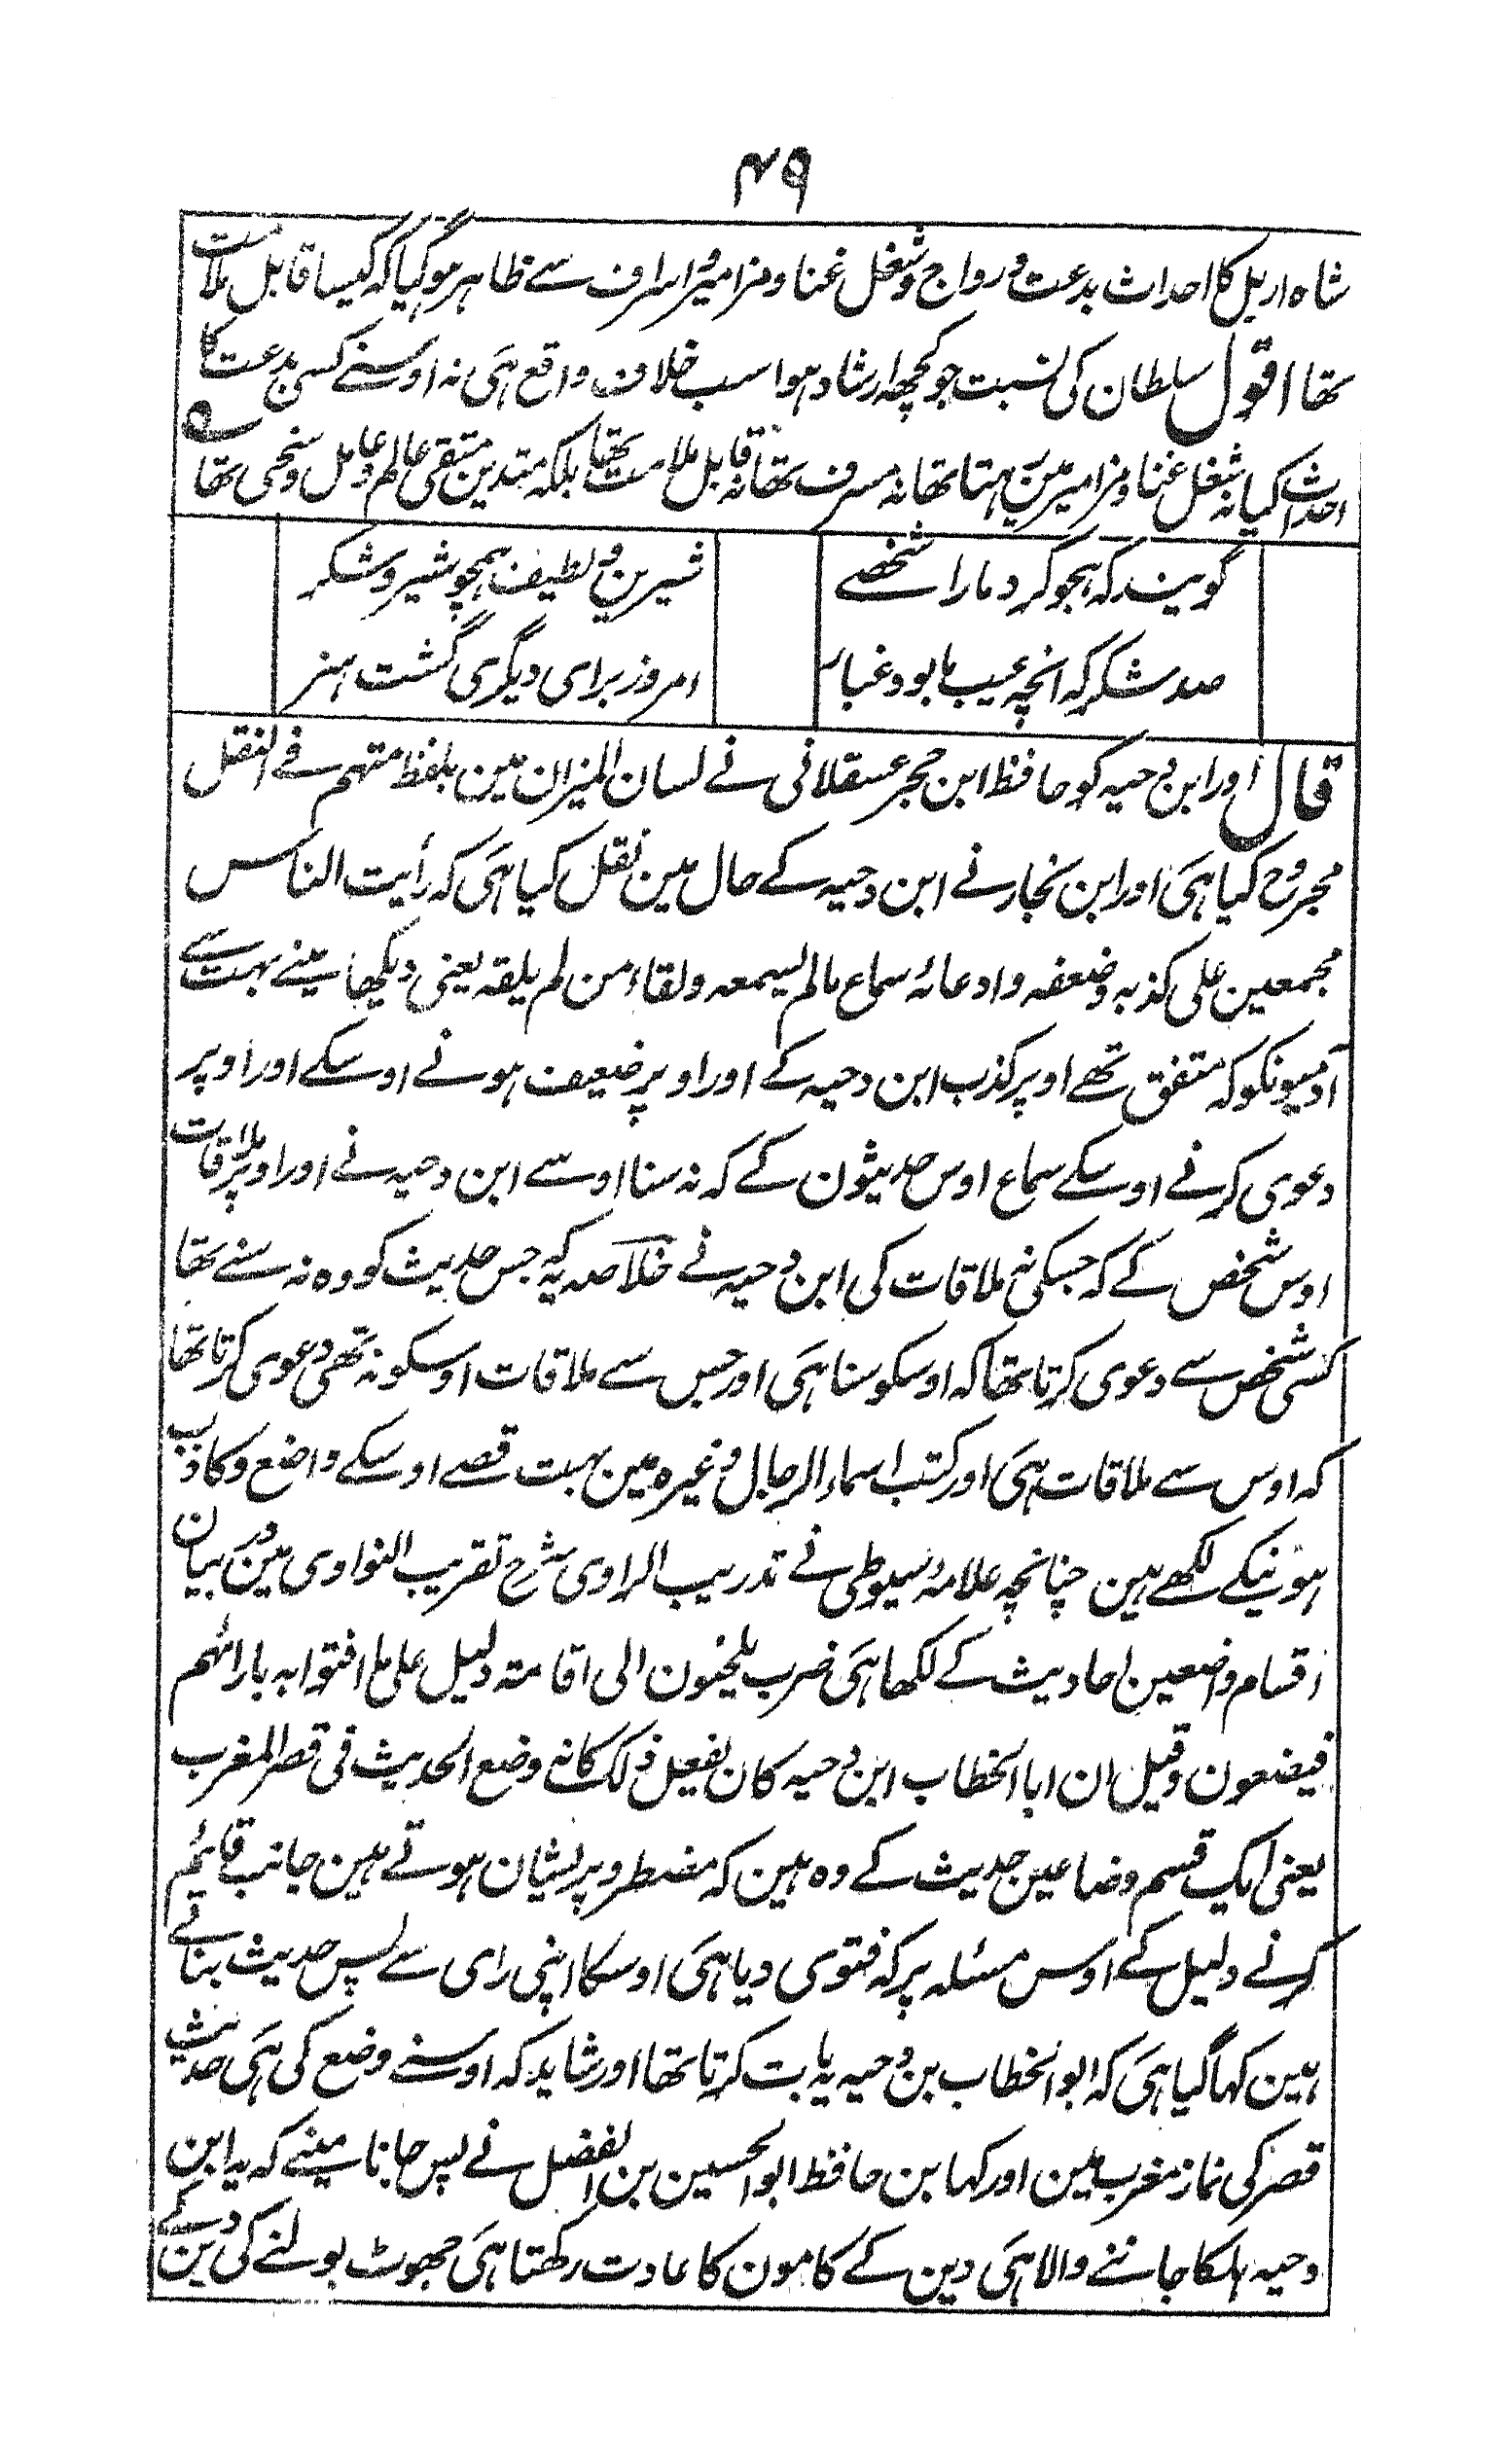 ۴۹
شاہ اربل کا احداث بدعت و رواج و شغل غنا و مزامیر و اسراف سے ظاہر ہوگیا کہ کیسا قابل ملامت
تھا اقول سلطان کی نسبت جو کچھ ارشاد ہوا سب خلاف واقع ہی نہ اوسنے کسی بدعت کا
احداث کیا نہ شغل غنا و مزامیر مین رہتا تھا نہ مسرف تھا نہ قابل ملامت تھا بلکہ متدین متقی عالم و عامل و سخی تھا
گویند کہ ہجو کرد مارا شخصے شیرین و لطیف ہمچو شیر و شکر
صد شکر کہ انچہ عیب ما بود و غبار امروز برای دیگری گشت ہنر
قال اور ابن دحیہ کو حافظ ابن حجر عسقلانی نے لسان المیزان مین بلفظ متہم فے النقل
مجروح کیا ہی اور ابن نجار نے ابن دحیہ کے حال مین نقل کیا ہی کہ رأیت الناس
مجمعین علی کذبہ وضعفہ وادعائہ سماع مالم یسمعہ ولقاء من لم یلقہ یعنی دیکھا مینے بہت سے
آدمیونکو کہ متفق تھے اوپر کذب ابن دحیہ کے اور اوپر ضعیف ہونے اوسکے اور اوپر
دعوی کرنے اوسکے سماع اوس حدیثون کے کہ نہ سنا اوسے ابن دحیہ نے اور اوپر ملاقات
اوس شخص کے کہ جسکی نہ ملاقات کی ابن دحیہ نے خلاصہ یہ کہ جس حدیث کو وہ نہ سنے تھا
کسی شخص سے دعوی کرتا تھا کہ اوسکو سنا ہی اور جس سے ملاقات اوسکو نہ تھی دعوی کرتا تھا
کہ اوس سے ملاقات ہی اور کتب اسماء الرجال وغیرہ مین بہت قصے اوسکے واضع و کاذب
ہونیکے لکھے ہین چنانچہ علامہ سیوطی نے تدریب الراوی شرح تقریب النواوی مین در بیان
اقسام واضعین احادیث کے لکھا ہی ضرب یلجئون الی اقامتہ دلیل علی ما افتوا بہ بارائہم
فیضعون وقیل ان ابا الخطاب ابن دحیہ کان یفعل ذلک کانہ وضع الحدیث فی قصر المغرب
یعنی ایک قسم وضاعین حدیث کے وہ ہین کہ مضطر و پریشان ہوتے ہین جانب قایم
کرنے دلیل کے اوس مسئلہ پر کہ فتوی دیا ہی اوسکا اپنی رای سے پس حدیث بناتے
ہین کہا گیا ہی کہ ابو الخطاب بن دحیہ یہ بابت کرتا تھا اور شاید کہ اوسنے وضع کی ہی حدیث
قصر کی نماز مغرب مین اور کہا بن حافظ ابو الحسین بن الفضل نے پس جانا مینے کہ یہ ابن
دحیہ ہلکا جاننے والا ہی دین کے کامون کا عادت رکھتا ہی جھوٹ بولنے کی دین کے